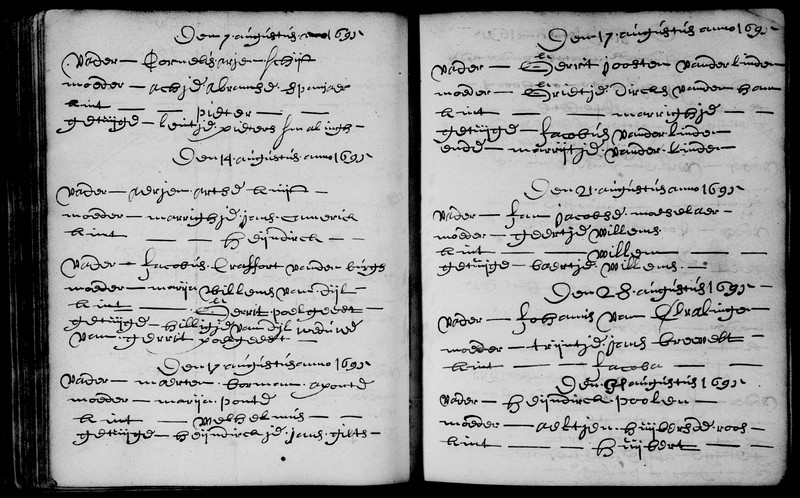 Den 7 augustus anno 1691
vader — Cornelis arjen schijf
moeder — achje abramse spanjaer
kint — pieter —
getuijge — lentje pieters smalingh —
Den 14 augustus anno 1691
vader — aerjen arthe kuijf —
moeder — marrighje jans
kint — Heijndrick —
vader — Jacobus Craffort vanden burgh
moeder — marija willems van dijl
kint — Gerrit poelgeest —
getuijge — hilligje van dijl weduwe
van gerrit poelgeest —
Den 17 augustus anno 1691
vader — maerten borman
moeder — marija ponte
kint — welhelmus —
getuijge — Heijndrickje jans gilts —
Den 17 augustus anno 1691
vader — Gerrit joosten vanderlinden
moeder — Grietje Dircks vanden ham
kint — marrighje —
getuijge — Jacobus vander linden
ende — marrijtje vander linden
Den 21 augustus anno 1691
vader — Jan jacobse moeselaer —
moeder — geertje willems
kint — willem —
getuijge — baertje willems —
Den 28 augustus 1691
vader — Johanis van Cralingen
moeder — trijntje jans breevelt —
kint — Jacoba —
Den 31 augustus 1691
vader — Heijndrick poolen —
moeder — aeltjen Huijberse roos —
kint — Huijbert —